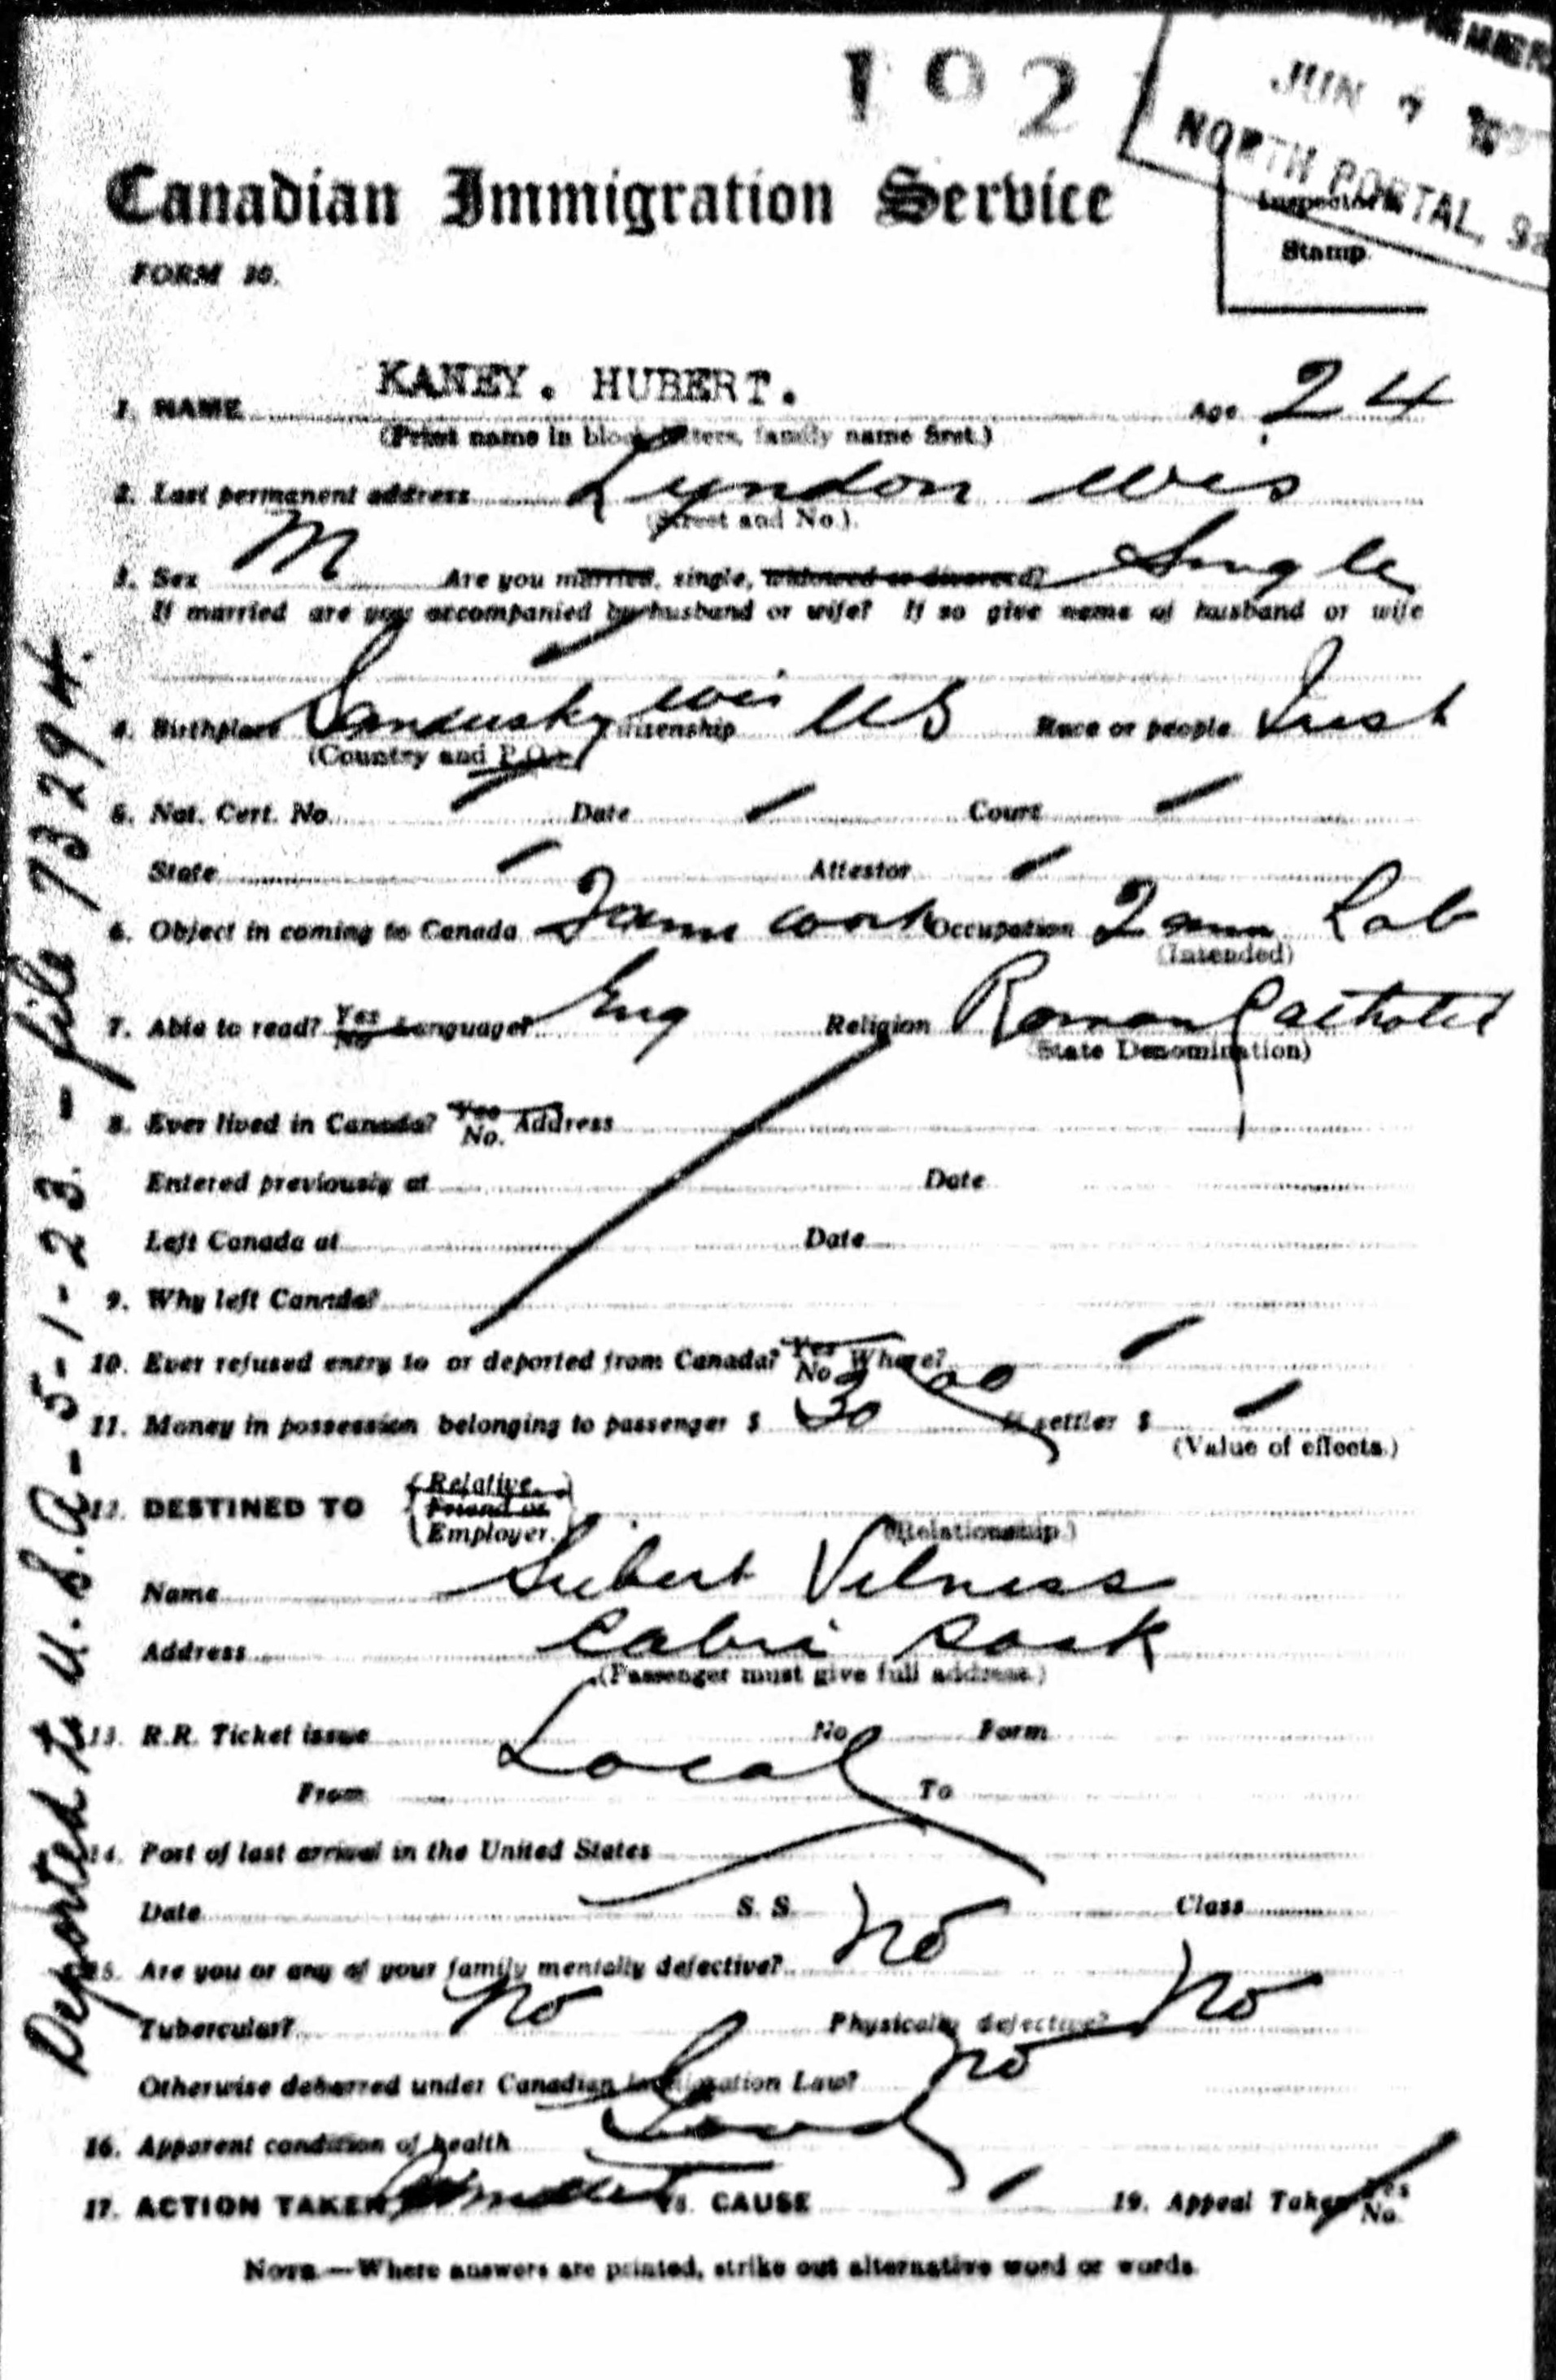 192
JUN 7
NORTH PORTAL, Sa
Canadian Immigration Service
Inspector's
Stamp
FORM 30.
KANEY. HUBERT.
1. NAME Age 24
(Print name in block letters, family name first.)
2. Last permanent address Lyndon Wis
(Street and No.)
3. Sex M Are you married, single, widowed or divorced? Single
If married are you accompanied by husband or wife? If so give name of husband or wife
4. Birthplace Sandusky Wis Citizenship US Race or people Irish
(Country and P.O.)
5. Nat. Cert. No. Date Court
State Attestor
6. Object in coming to Canada Farm work Occupation Farm Lab
(Intended)
7. Able to read? Yes No Language? Eng Religion Roman Catholic
(State Denomination)
8. Ever lived in Canada? Yes No. Address
Entered previously at Date
Left Canada at Date
9. Why left Canada?
10. Ever refused entry to or deported from Canada? Yes No Where?
11. Money in possession belonging to passenger $ 30 00 If settler $
(Value of effects.)
12. DESTINED TO Relative. Friend or Employer.
(Relationship.)
Name Velness
Address Cabri Sask
(Passenger must give full address.)
13. R.R. Ticket issue Local No. Form
From To
14. Port of last arrival in the United States
Date S. S. Class
15. Are you or any of your family mentally defective? No
Tubercular? No Physically defective? No
Otherwise debarred under Canadian Immigration Law? No
16. Apparent condition of health Good
17. ACTION TAKEN Admitted 18. CAUSE 19. Appeal Taken Yes No.
NOTE.—Where answers are printed, strike out alternative word or words.
Deported to U.S.A - 5-1-23. - file 73294.